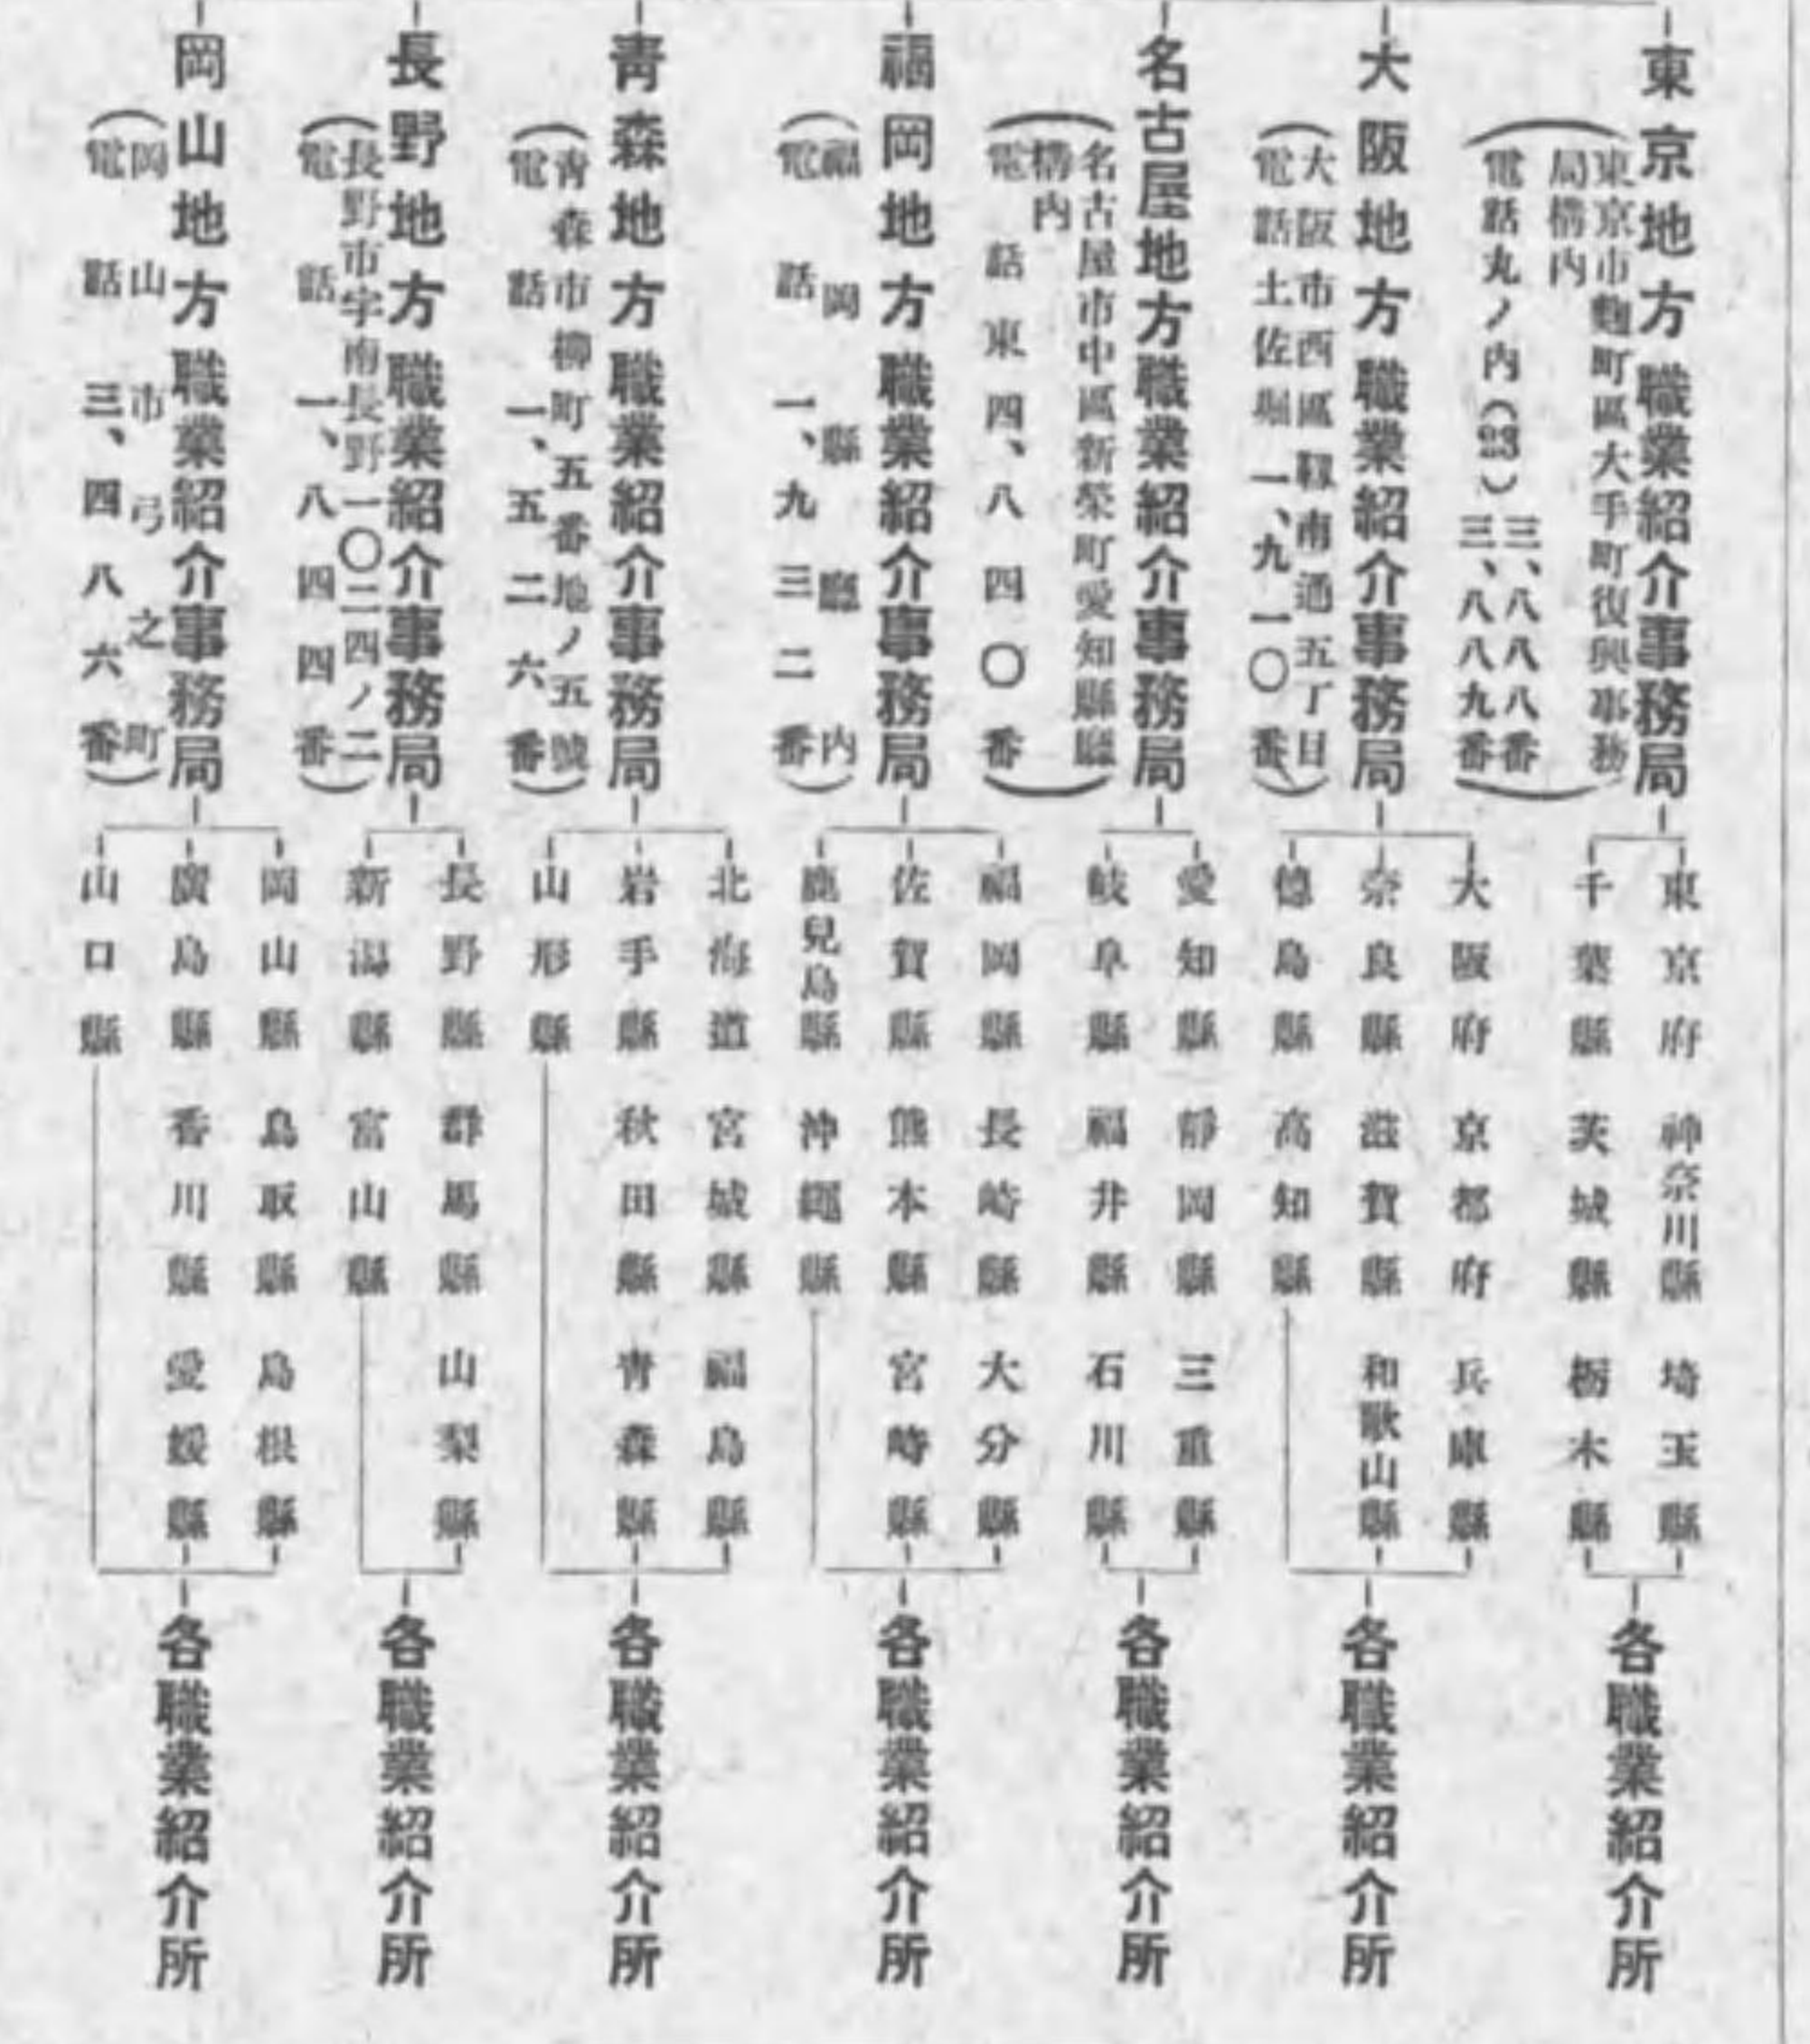 東京地方職業紹介事務局
東京市麴町區大手町復興事務
局構内
電話丸ノ内(23)三、八八八番
三、八八九番
東京府 神奈川縣 埼玉縣
千葉縣 茨城縣 栃木縣
各職業紹介所
大阪地方職業紹介事務局
大阪市西區靱南通五丁目
電話土佐堀一、九一〇番
大阪府 京都府 兵庫縣
奈良縣 滋賀縣 和歌山縣
德島縣 高知縣
各職業紹介所
名古屋地方職業紹介事務局
名古屋市中區新榮町愛知縣廳
構内
電話東四、八四〇番
愛知縣 靜岡縣 三重縣
岐阜縣 福井縣 石川縣
各職業紹介所
福岡地方職業紹介事務局
福岡縣廳内
電話一、九三二番
福岡縣 長崎縣 大分縣
佐賀縣 熊本縣 宮崎縣
鹿兒島縣 沖繩縣
各職業紹介所
靑森地方職業紹介事務局
靑森市柳町五番地ノ五號
電話一、五二六番
北海道 宮城縣 福島縣
岩手縣 秋田縣 靑森縣
山形縣
各職業紹介所
長野地方職業紹介事務局
長野市字南長野一〇二四ノ二
電話一、八四四番
長野縣 群馬縣 山梨縣
新潟縣 富山縣
各職業紹介所
岡山地方職業紹介事務局
岡山市弓之町
電話三、四八六番
岡山縣 鳥取縣 島根縣
廣島縣 香川縣 愛媛縣
山口縣
各職業紹介所